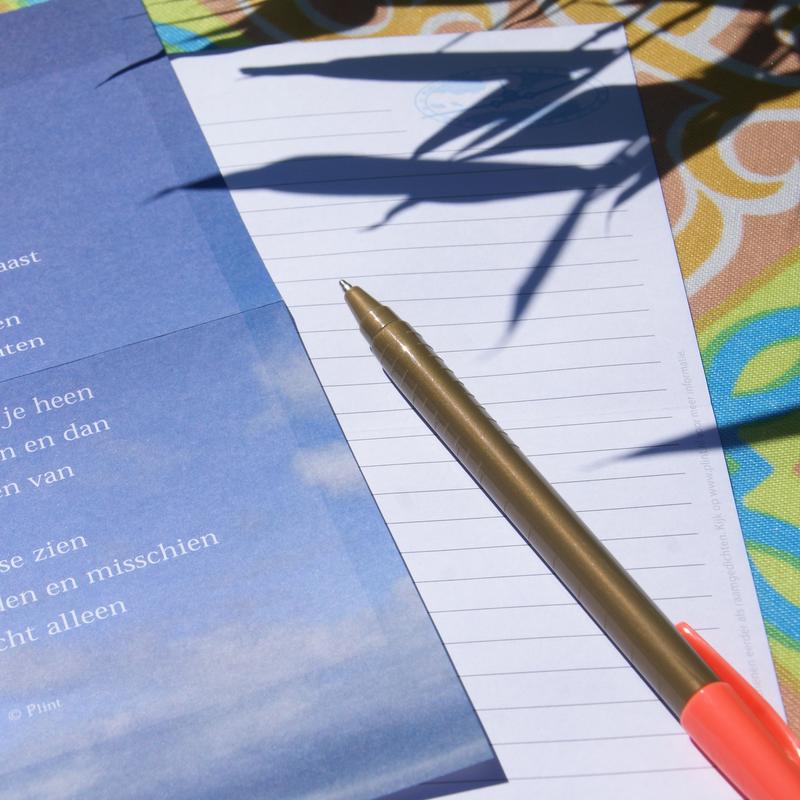 aast
en
ten
je heen
n en dan
en van
se zien
len en misschien
cht alleen
© Plint
enen eerder als raamgedichten. Kijk op www.plint voor meer informatie.